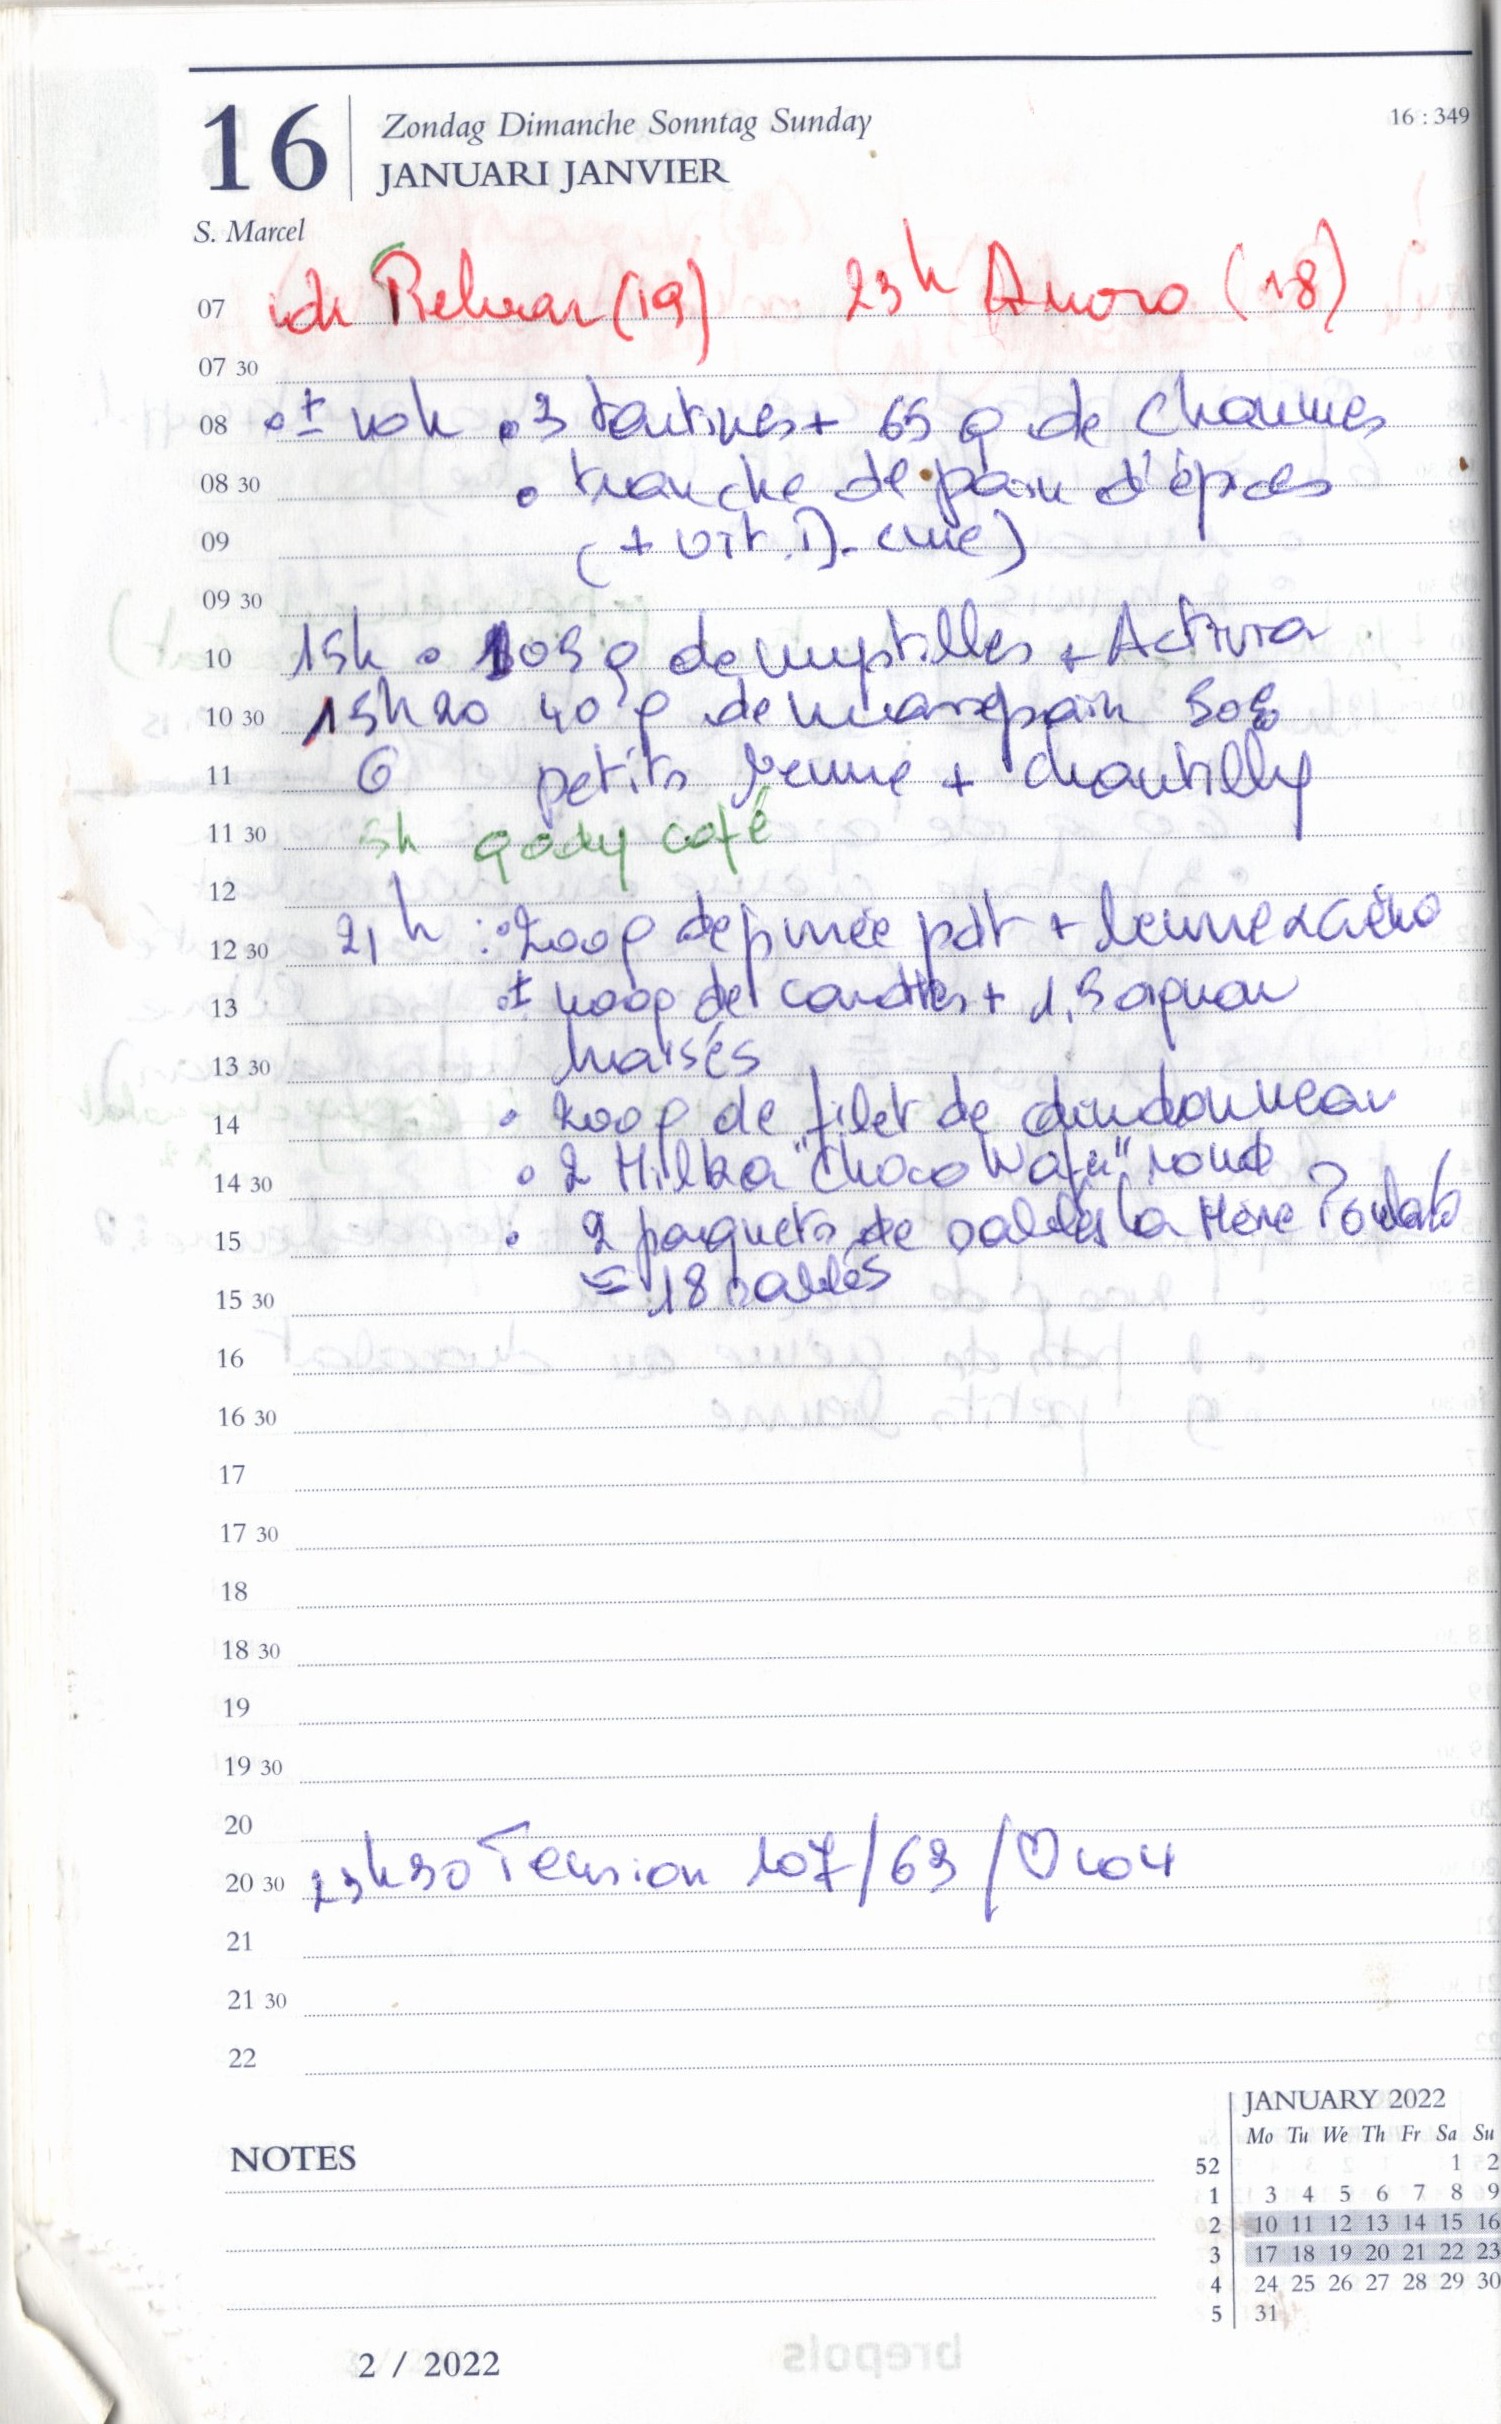 16
Zondag Dimanche Sonntag Sunday
JANUARI JANVIER
16 : 349
S. Marcel
07 10h (19) 23h (18)
07 30
08 ± 10h • 3 tartines + 65 g de Chaumes
08 30 • tranche de pain d'épices
09 (+ vit. D. cure)
09 30
10 15h • 105 g de myrtilles + Activia
10 30 15h20 40 g de massepain
11 6 petits beurre + chantilly
11 30 5h gody café
12
12 30 21h : • 200 g de purée pdt +
13 • ± 100 g de carottes + 1,5 oignon
13 30
14 • 200 g de filet de dindonneau
14 30 • 2 Milka "Choco Wafer" rond
15 • 2 paquets de sablés la Mère Poulard
15 30 = 18 sablés
16
16 30
17
17 30
18
18 30
19
19 30
20
20 30 23h30 Tension 107/63/♡104
21
21 30
22
NOTES
JANUARY 2022
Mo Tu We Th Fr Sa Su
52 1 2
1 3 4 5 6 7 8 9
2 10 11 12 13 14 15 16
3 17 18 19 20 21 22 23
4 24 25 26 27 28 29 30
5 31
2 / 2022